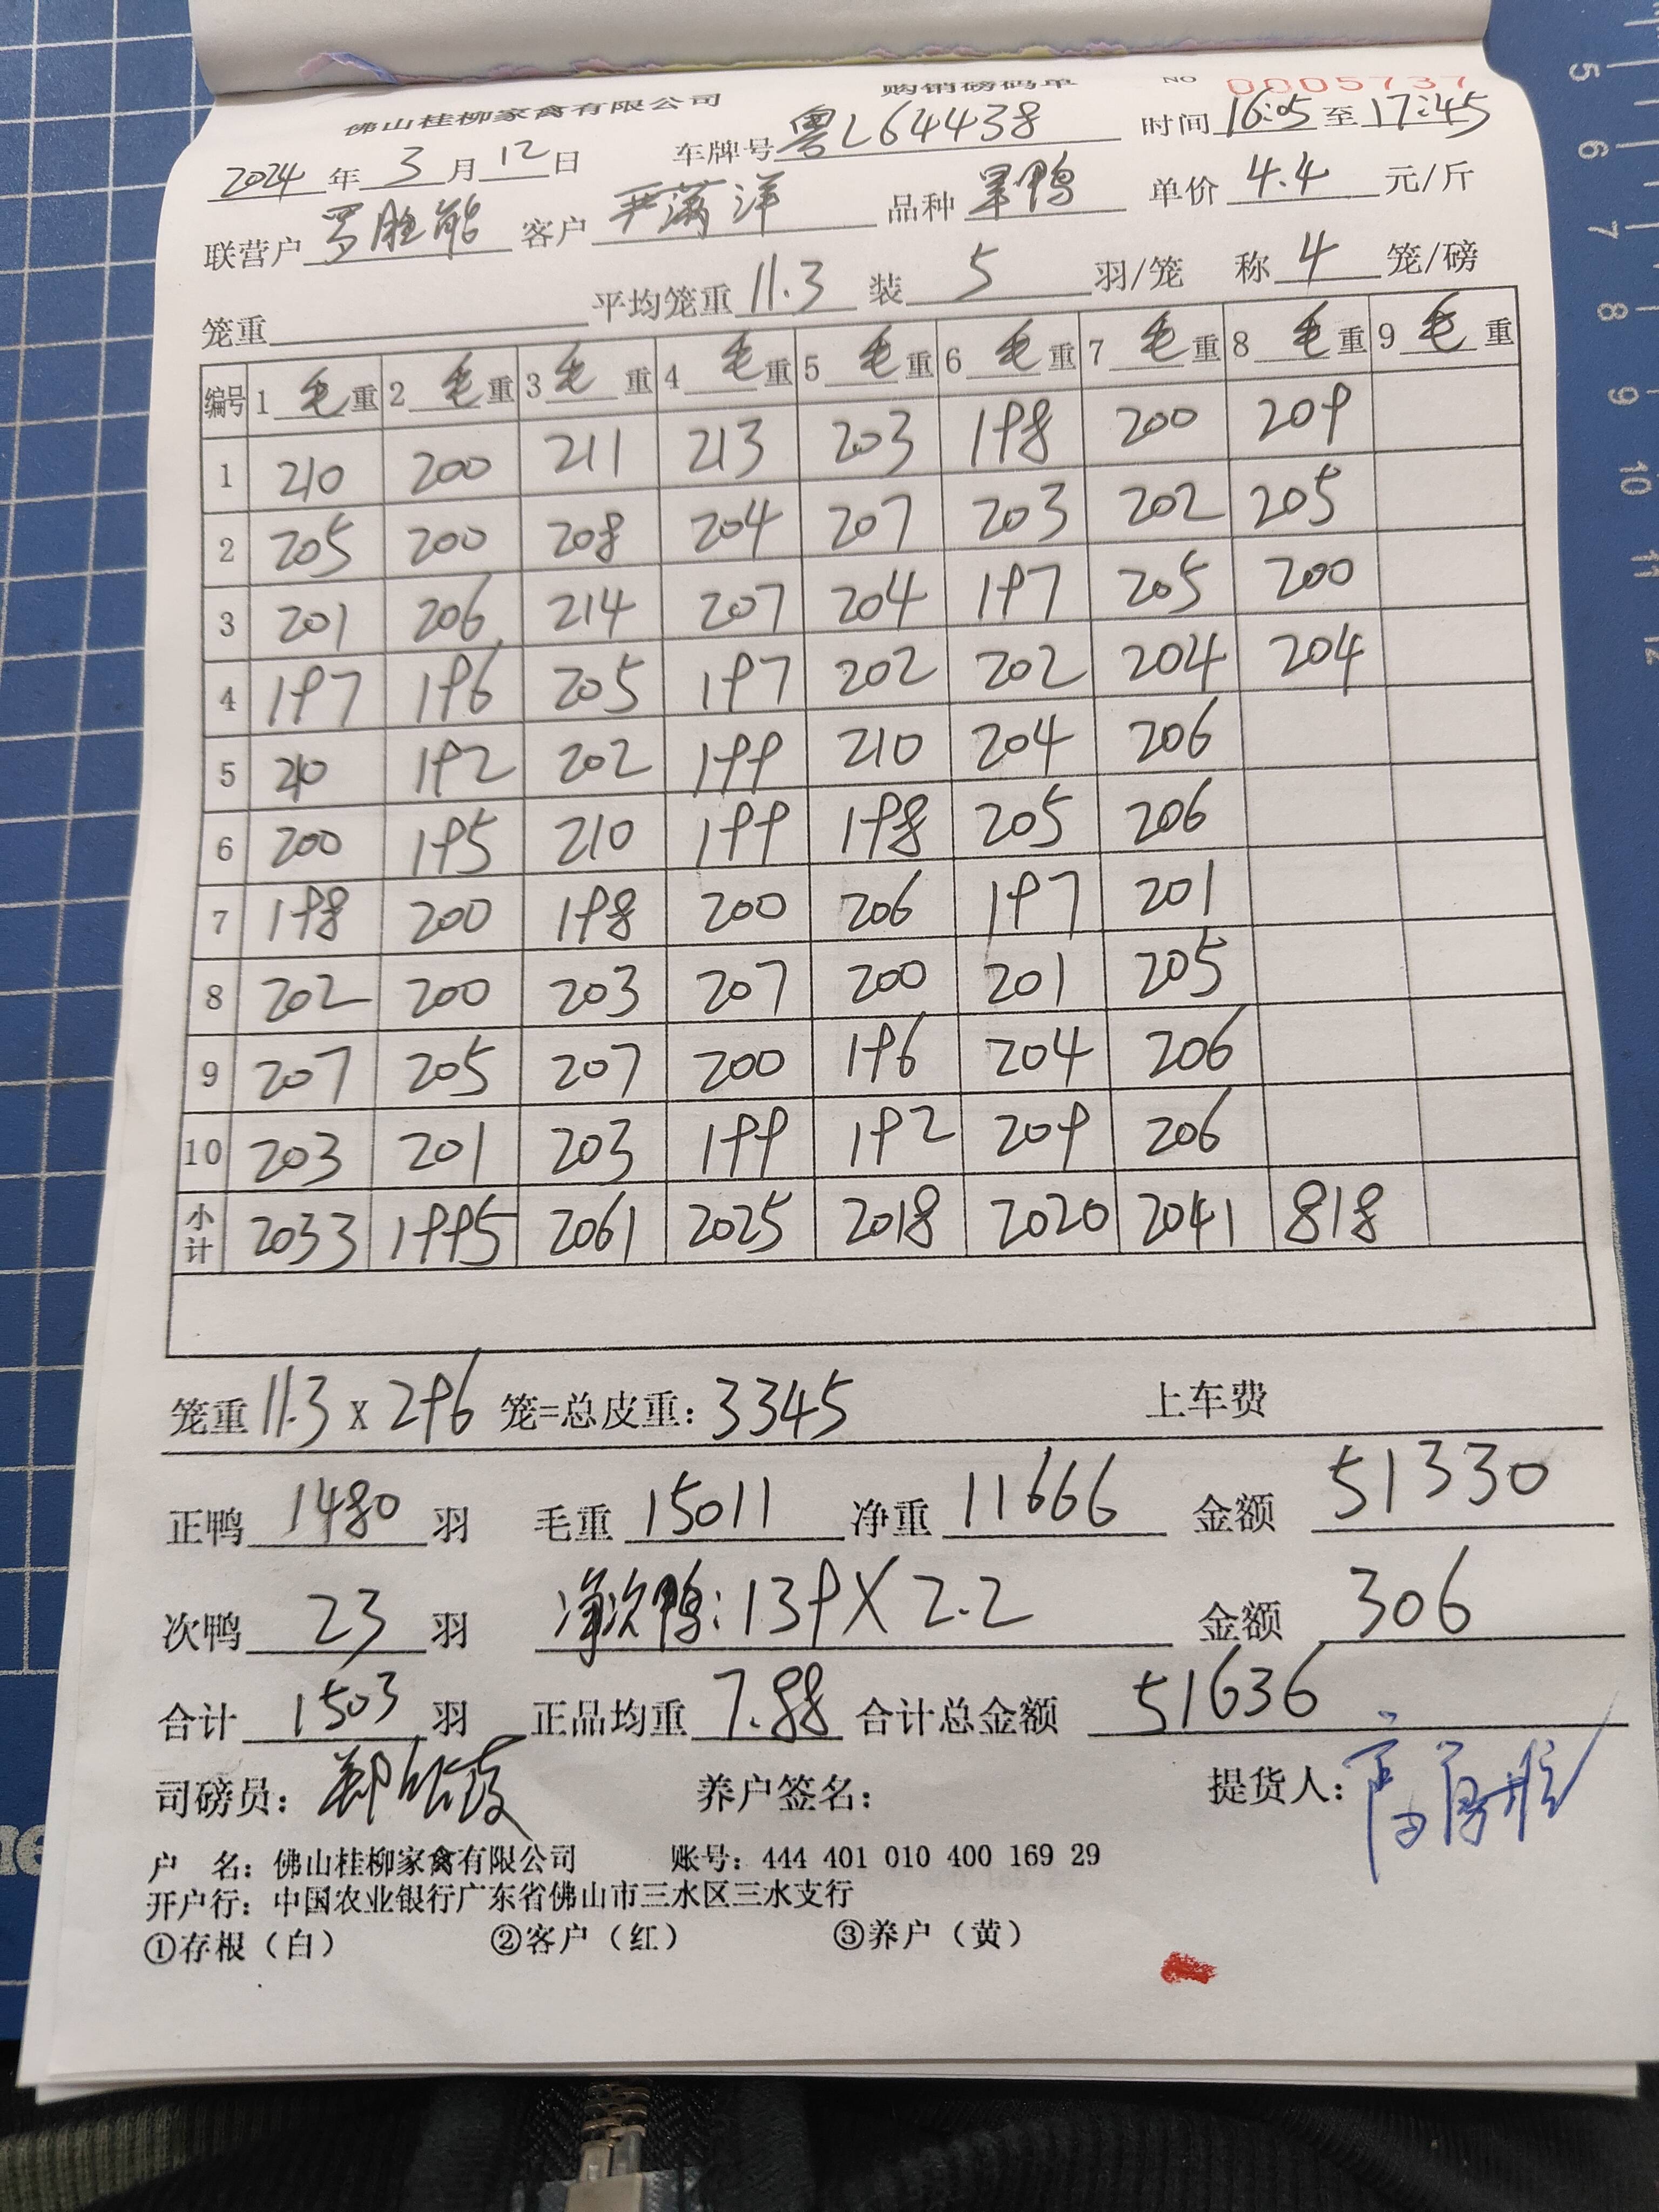 佛山桂柳家禽有限公司 购销磅码单 NO 0005737
2024年3月12日 车牌号粤L64438 时间16:05至17:45
联营户 罗胜能 客户 严满洋 品种 鸭 单价 4.4 元/斤
笼重 平均笼重 11.3 装 5 羽/笼 称 4 笼/磅
编号 1毛重 2毛重 3毛重 4毛重 5毛重 6毛重 7毛重 8毛重 9毛重
1 210 200 211 213 203 198 200 209
2 205 200 208 204 207 203 202 205
3 201 206 214 207 204 197 205 200
4 197 196 205 197 202 202 204 204
5 210 192 202 199 210 204 206
6 200 195 210 199 198 205 206
7 198 200 198 200 206 197 201
8 202 200 203 207 200 201 205
9 207 205 207 200 196 204 206
10 203 201 203 199 192 209 206
小计 2033 1995 2061 2025 2018 2020 2041 818
笼重 11.3 X 296 笼=总皮重: 3345 上车费
正鸭 1480 羽 毛重 15011 净重 11666 金额 51330
次鸭 23 羽 净次鸭: 139 X 2.2 金额 306
合计 1503 羽 正品均重 7.88 合计总金额 51636
司磅员: 养户签名: 提货人:
户 名: 佛山桂柳家禽有限公司 账号: 444 401 010 400 169 29
开户行: 中国农业银行广东省佛山市三水区三水支行
①存根（白） ②客户（红） ③养户（黄）
5
6
7
8
9
10
11
12